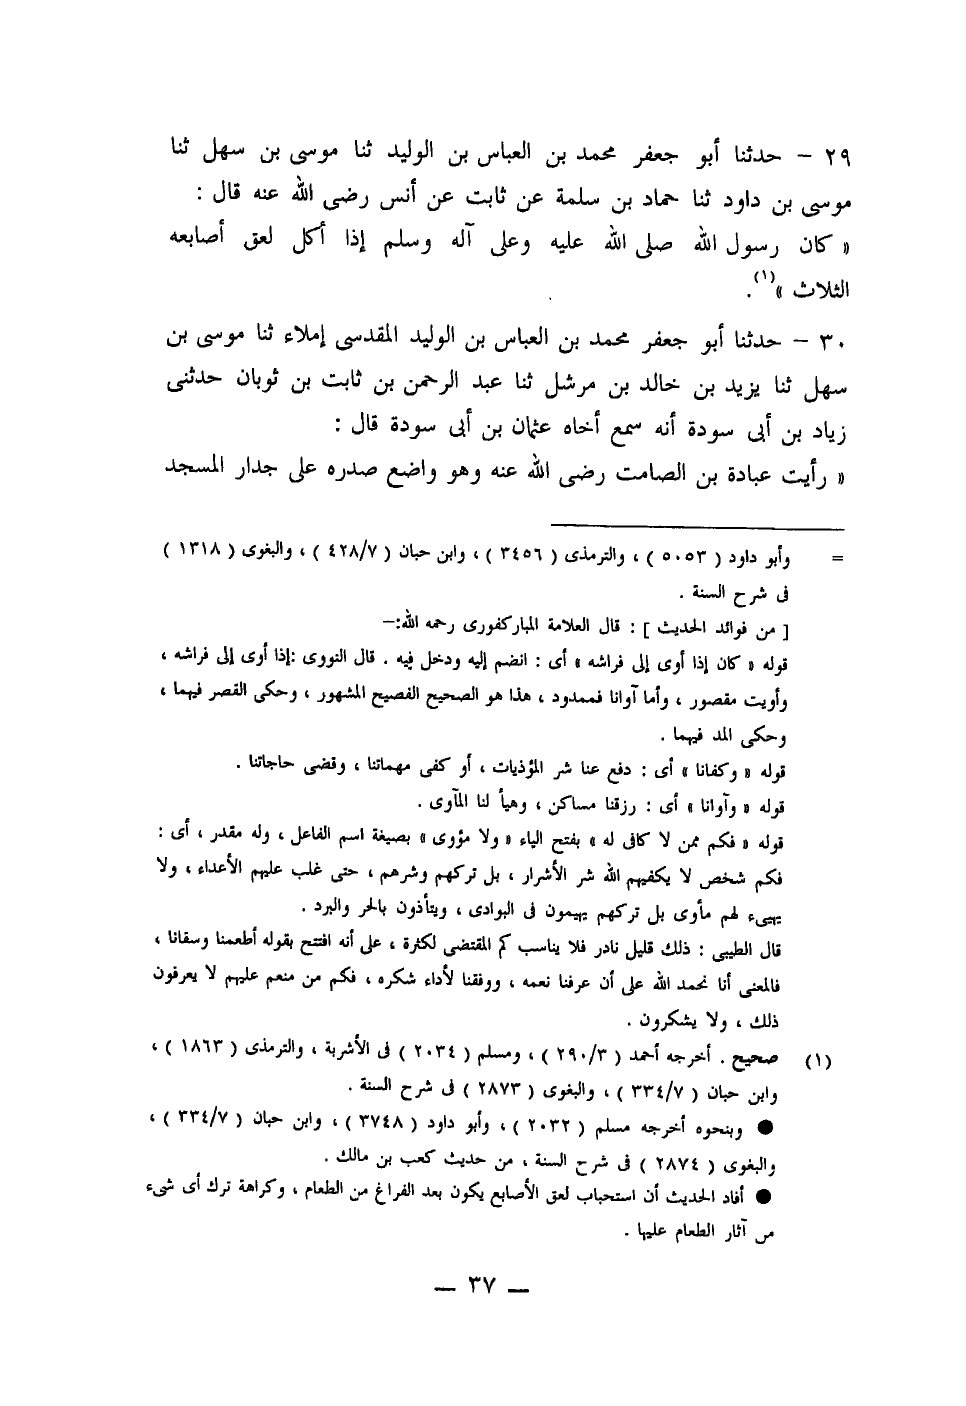 ٢٩ – حدثنا أبو جعفر محمد بن العباس بن الوليد ثنا موسى بن سهل ثنا
موسى بن داود ثنا حماد بن سلمة عن ثابت عن أنس رضى الله عنه قال :
« كان رسول الله صلى الله عليه وعلى آله وسلم إذا أكل لعق أصابعه
الثلاث »(١).
٣٠ – حدثنا أبو جعفر محمد بن العباس بن الوليد المقدسى إملاء ثنا موسى بن
سهل ثنا يزيد بن خالد بن مرشل ثنا عبد الرحمن بن ثابت بن ثوبان حدثنى
زياد بن أبى سودة أنه سمع أخاه عثمان بن أبى سودة قال :
« رأيت عبادة بن الصامت رضى الله عنه وهو واضع صدره على جدار المسجد
= وأبو داود ( ٥٠٥٣ ) ، والترمذى ( ٣٤٥٦ ) ، وابن حبان ( ٤٢٨/٧ ) ، والبغوى ( ١٣١٨ )
فى شرح السنة .
[ من فوائد الحديث ] : قال العلامة المباركفورى رحمه الله:–
قوله « كان إذا أوى إلى فراشه » أى : انضم إليه ودخل فيه . قال النووى :إذا أوى إلى فراشه ،
وأويت مقصور ، وأما آوانا فممدود ، هذا هو الصحيح الفصيح المشهور ، وحكى القصر فيهما ،
وحكى المد فيهما .
قوله « وكفانا » أى : دفع عنا شر المؤذيات ، أو كفى مهماتنا ، وقضى حاجاتنا .
قوله « وآوانا » أى : رزقنا مساكن ، وهيأ لنا المآوى .
قوله « فكم ممن لا كافى له » بفتح الياء « ولا مؤوى » بصيغة اسم الفاعل ، وله مقدر ، أى :
فكم شخص لا يكفيهم الله شر الأشرار ، بل تركهم وشرهم ، حتى غلب عليهم الأعداء ، ولا
يهيىء لهم مأوى بل تركهم يهيمون فى البوادى ، ويتأذون بالحر والبرد .
قال الطيبى : ذلك قليل نادر فلا يناسب كم المقتضى لكثرة ، على أنه افتتح بقوله أطعمنا وسقانا ،
فالمعنى أنا نحمد الله على أن عرفنا نعمه ، ووفقنا لأداء شكره ، فكم من منعم عليهم لا يعرفون
ذلك ، ولا يشكرون .
(١) صحيح . أخرجه أحمد ( ٢٩٠/٣ ) ، ومسلم ( ٢٠٣٤ ) فى الأشربة ، والترمذى ( ١٨٦٣ ) ،
وابن حبان ( ٣٣٤/٧ ) ، والبغوى ( ٢٨٧٣ ) فى شرح السنة .
● وبنحوه أخرجه مسلم ( ٢٠٣٢ ) ، وأبو داود ( ٣٧٤٨ ) ، وابن حبان ( ٣٣٤/٧ ) ،
والبغوى ( ٢٨٧٤ ) فى شرح السنة ، من حديث كعب بن مالك .
● أفاد الحديث أن استحباب لعق الأصابع يكون بعد الفراغ من الطعام ، وكراهة ترك أى شىء
من آثار الطعام عليها .
— ٣٧ —